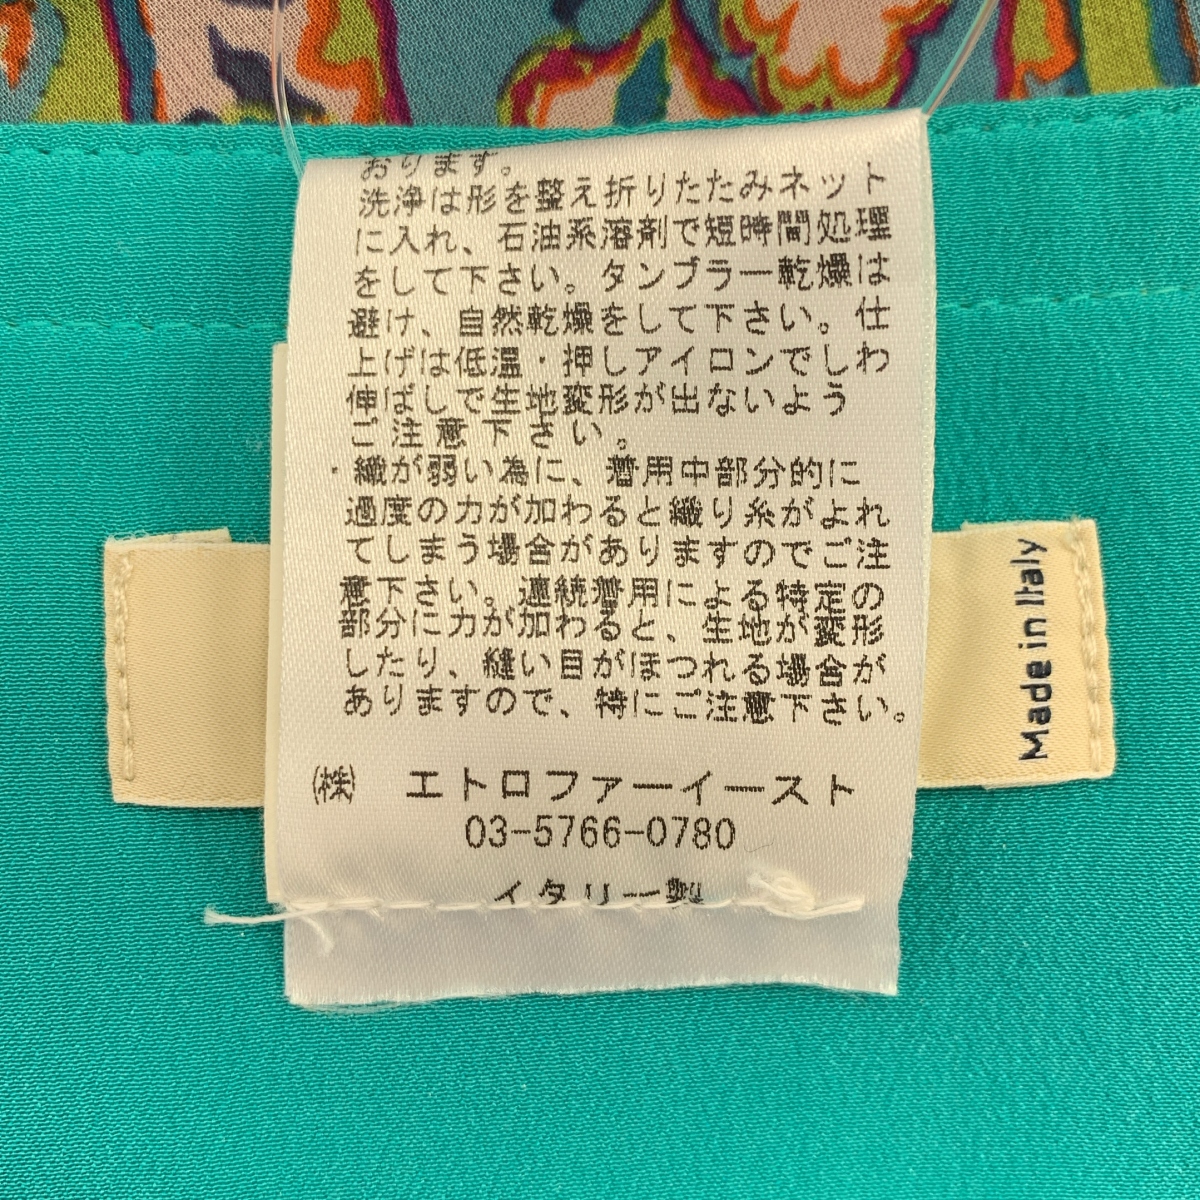 おります。
洗浄は形を整え折りたたみネット
に入れ、石油系溶剤で短時間処理
をして下さい。タンブラー乾燥は
避け、自然乾燥をして下さい。仕
上げは低温・押しアイロンでしわ
伸ばしで生地変形が出ないよう
ご注意下さい。
・織が弱い為に、着用中部分的に
過度の力が加わると織り糸がよれ
てしまう場合がありますのでご注
意下さい。連続着用による特定の
部分に力が加わると、生地が変形
したり、縫い目がほつれる場合が
ありますので、特にご注意下さい。
㈱ エトロファーイースト
03-5766-0780
イタリー製
Made in Italy